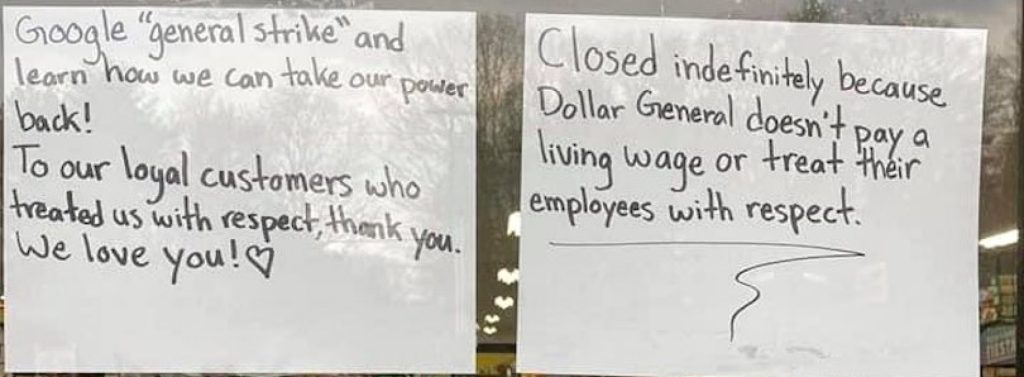 Google "general strike" and
learn how we can take our power
back!
To our loyal customers who
treated us with respect, thank you.
We love you!♡
Closed indefinitely because
Dollar General doesn't pay a
living wage or treat their
employees with respect.